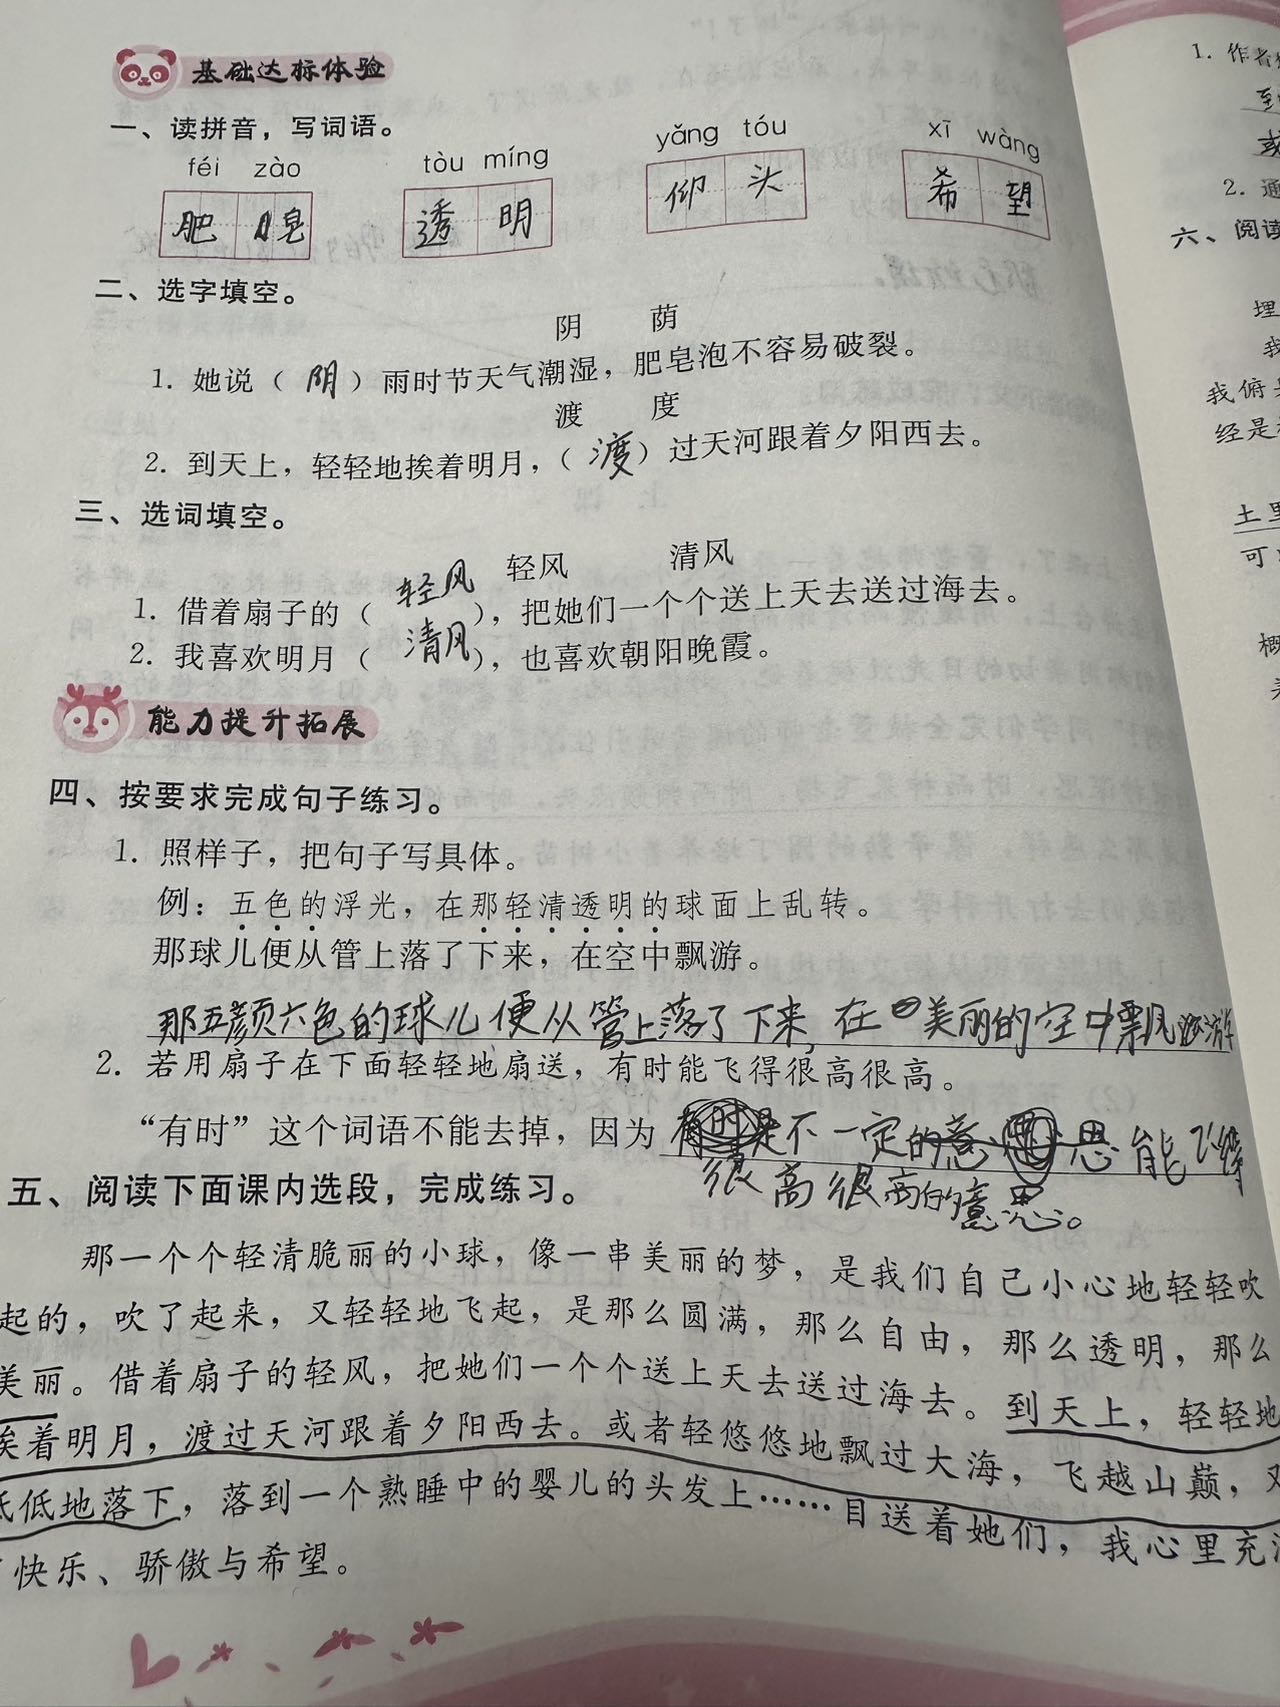 基础达标体验
一、读拼音，写词语。
féi zào tòu míng yǎng tóu xī wàng
肥皂 透明 仰头 希望
二、选字填空。
阴 荫
1. 她说（阴）雨时节天气潮湿，肥皂泡不容易破裂。
渡 度
2. 到天上，轻轻地挨着明月，（渡）过天河跟着夕阳西去。
三、选词填空。
轻风 清风
1. 借着扇子的（轻风），把她们一个个送上天去送过海去。
2. 我喜欢明月（清风），也喜欢朝阳晚霞。
能力提升拓展
四、按要求完成句子练习。
1. 照样子，把句子写具体。
例：五色的浮光，在那轻清透明的球面上乱转。
那球儿便从管上落了下来，在空中飘游。
那五颜六色的球儿便从管上落了下来，在美丽的空中飘游
2. 若用扇子在下面轻轻地扇送，有时能飞得很高很高。
“有时”这个词语不能去掉，因为 是不一定 能飞得
很高很高的意思。
五、阅读下面课内选段，完成练习。
那一个个轻清脆丽的小球，像一串美丽的梦，是我们自己小心地轻轻吹
起的，吹了起来，又轻轻地飞起，是那么圆满，那么自由，那么透明，那么
美丽。借着扇子的轻风，把她们一个个送上天去送过海去。到天上，轻轻地
挨着明月，渡过天河跟着夕阳西去。或者轻悠悠地飘过大海，飞越山巅，
低低地落下，落到一个熟睡中的婴儿的头发上……目送着她们，我心里充
快乐、骄傲与希望。
1. 作者
2. 通
六、阅读
埋
我
我俯
经是
土里
可
概